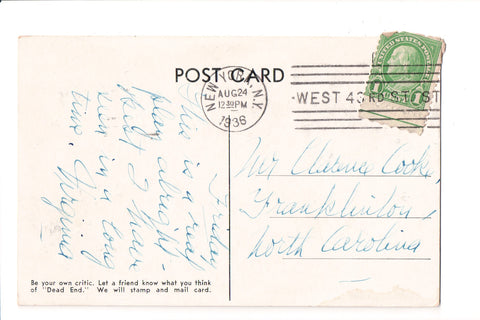 POST CARD
NEW YORK, N.Y.
AUG 24
12 30 PM
1936
WEST 43RD ST. STA
UNITED STATES POSTAGE
Friday
This is a real
play alright -
Best I have
seen in a long
time. Virginia
Mr Clarence Cook,
Franklinton,
North Carolina
Be your own critic. Let a friend know what you think
of "Dead End." We will stamp and mail card.